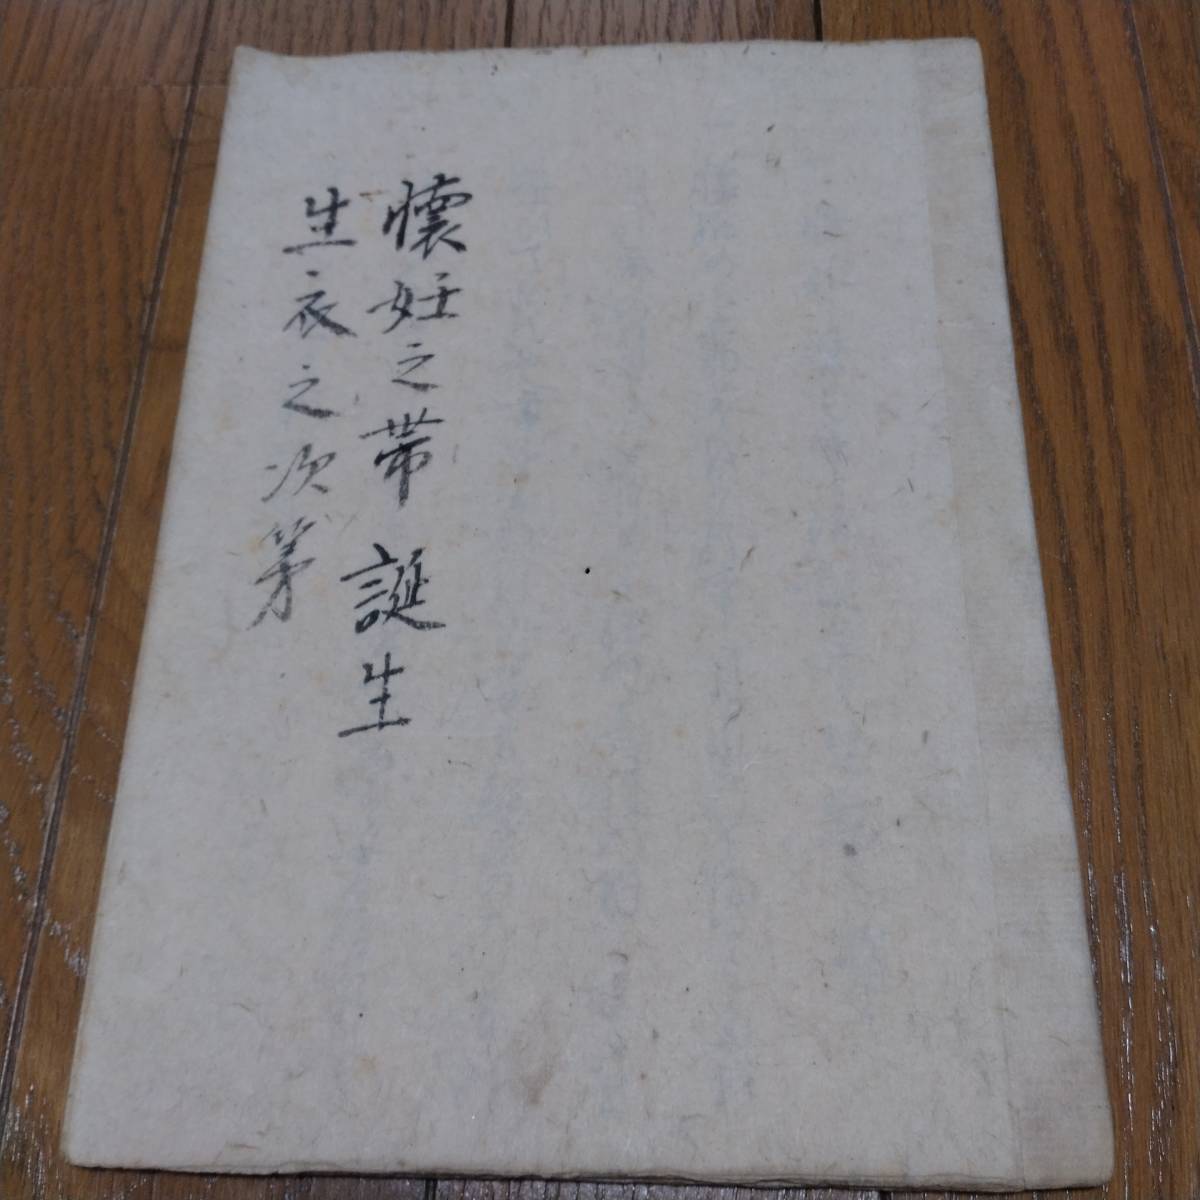 懐妊之帯 誕生
生衣之次第